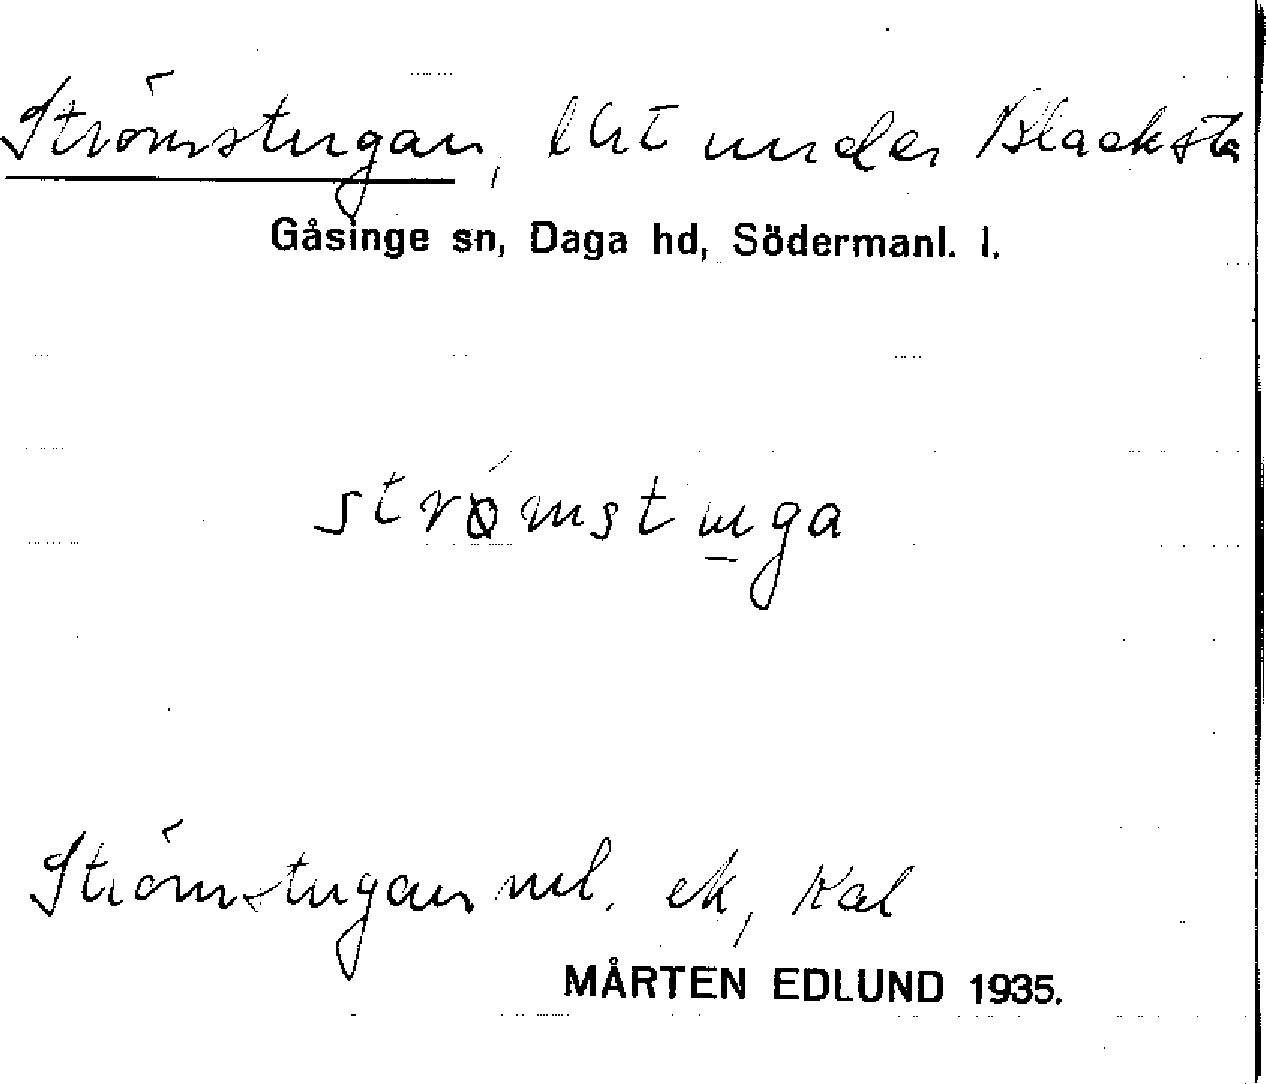 Strömstugan, lht under Blacksta
Gåsinge sn, Daga hd, Södermanl. l.
strǿmstuga
Strömstugan ek, Kal
MÅRTEN EDLUND 1935.